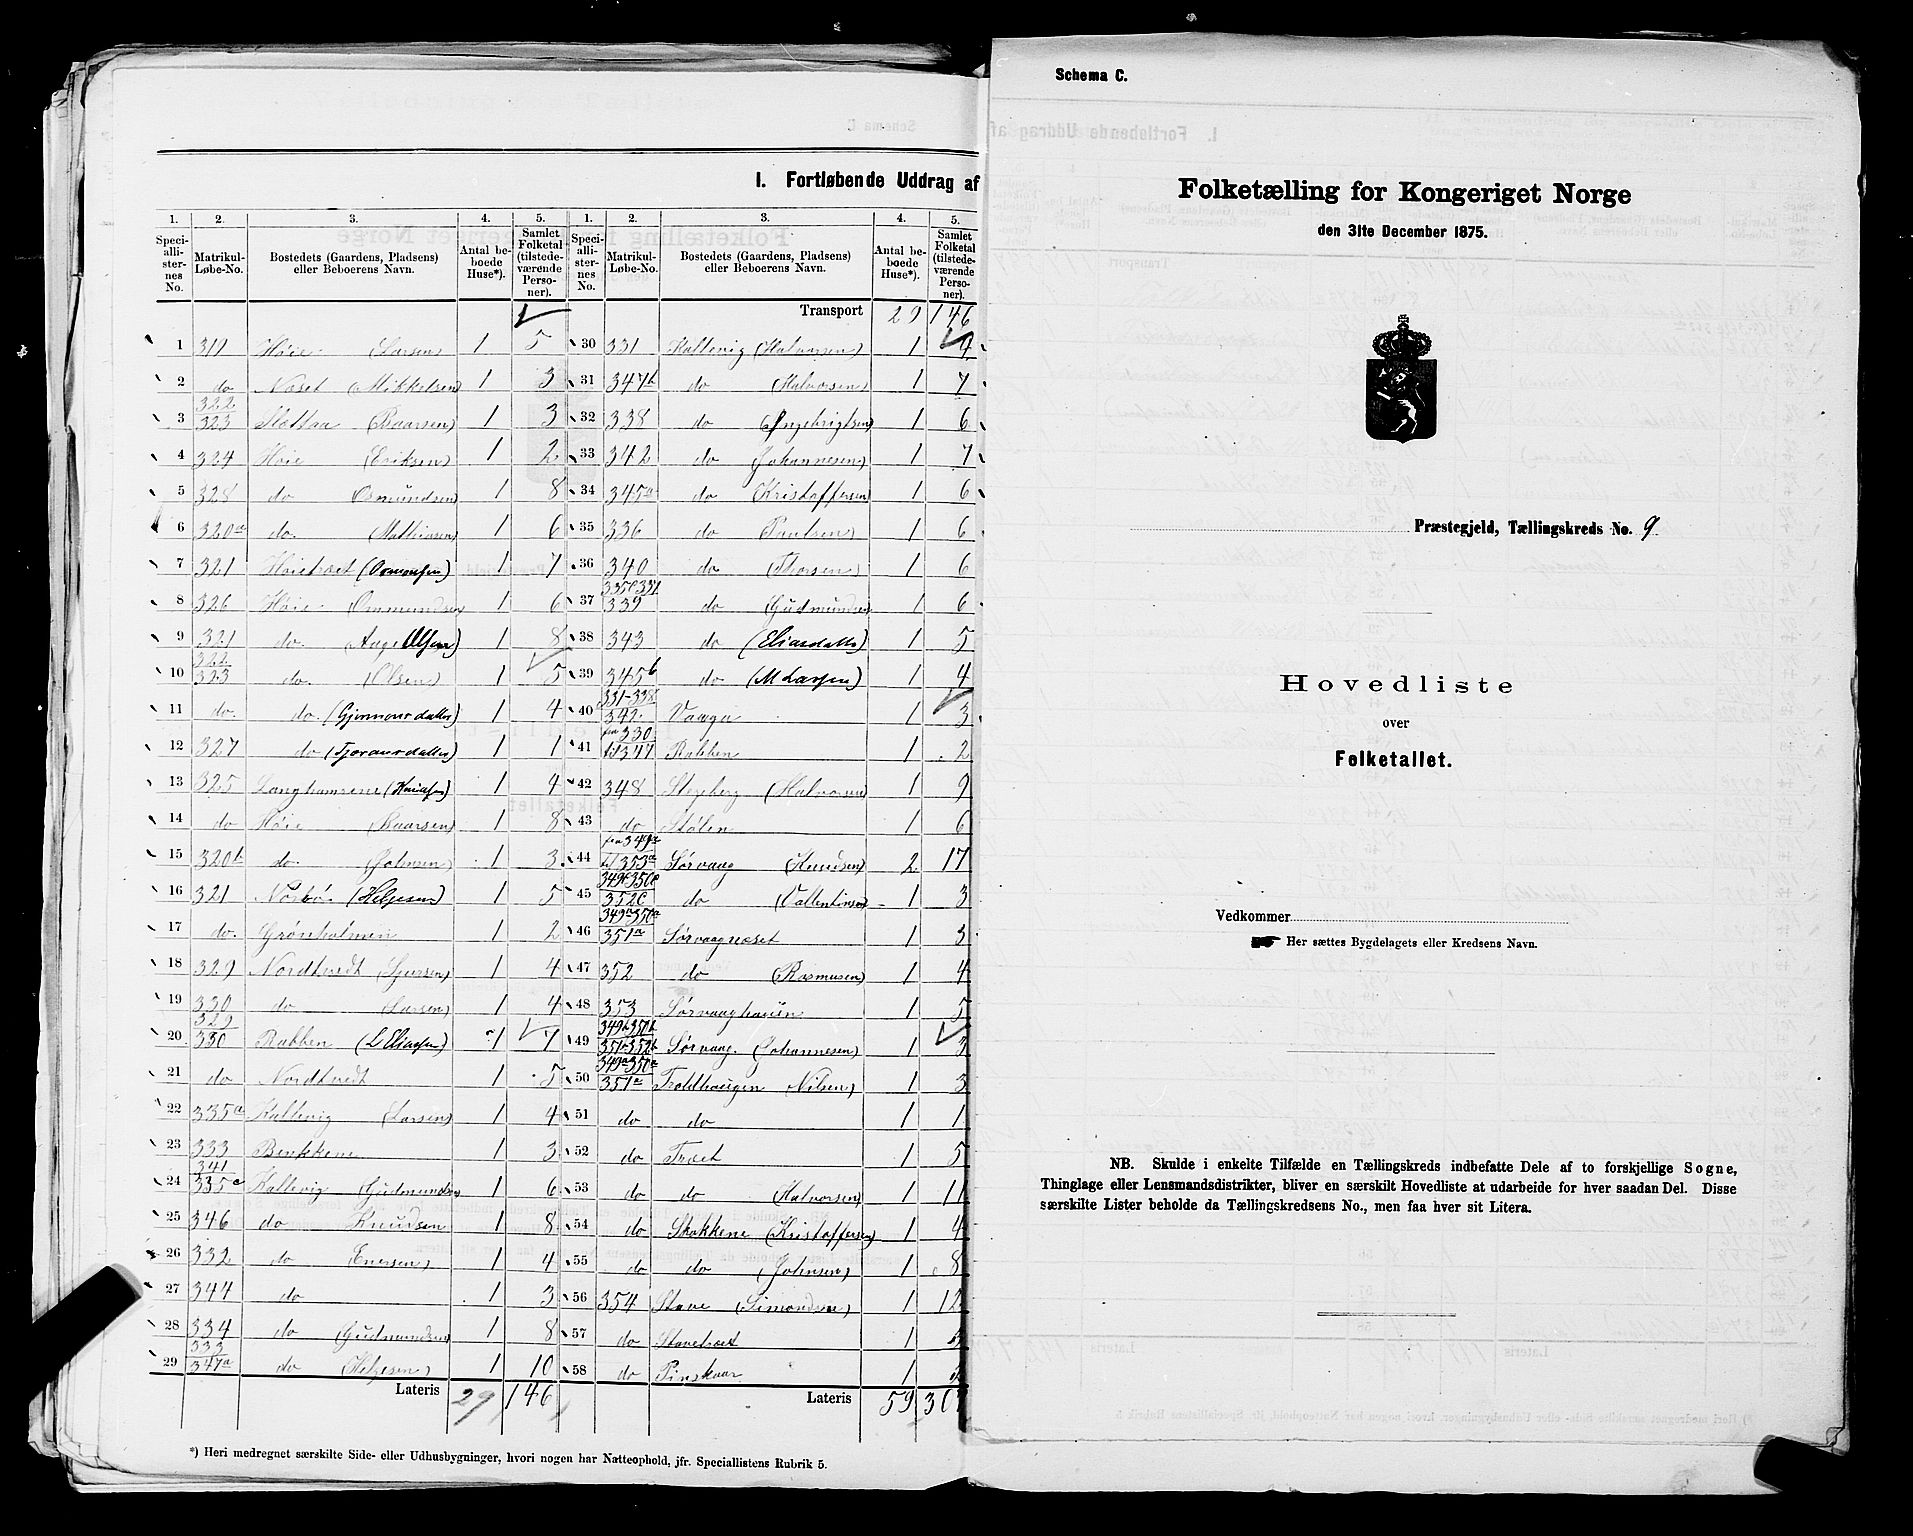 I. Fortløbende Uddrag af
1. 2. 3. 4. 5. 1. 2. 3. 4. 5.
Speciallisternes No. Matrikul-Løbe-No. Bostedets (Gaardens, Pladsens) eller Beboerens Navn. Antal beboede Huse*). Samlet Folketal (tilstedeværende Personer). Speciallisternes No. Matrikul-Løbe-No. Bostedets (Gaardens, Pladsens) eller Beboerens Navn. Antal beboede Huse*). Samlet Folketal (tilstedeværende Personer).
Transport 29 146
1 319 Høie (Larsen) 1 5 30 331 Kallevig (Halvorsen) 1 4
2 do Næset (Mikkelsen) 1 3 31 347b do (Halvorsen) 1 7
3 322 323 (Baarsen) 1 3 32 338 do (Ingebrigtsen) 1 6
4 324 Høie (Eriksen) 1 2 33 342 do (Johannesen) 1 7
5 328 do Osmundsen 1 8 34 345a do Kristoffersen) 1 6
6 320a do (Mathiasen) 1 6 35 336 do (Paulsen) 1 6
7 321 Høietræet 1 7 36 340 do (Thorsen) 1 6
8 326 Høie Ommundsen 1 6 37 339 do (Gudmundsen 1 6
9 321 do (Aage Olsen) 1 8 38 343 do (Eliasdatter) 1 5
10 322 323 do (Olsen) 1 5 39 345b do (M Larsen) 1 4
11 do do 1 4 40 331-338 342 Vaaga 1 3
12 327 do 1 1 41 fra 330 til 347 Rabben 1 2
13 325 1 4 42 348 Stegberg (Halvorsen) 1 9
14 do Høie (Baarsen) 1 8 43 do Stølen 1 6
15 320b do (Johnsen) 1 3 44 fra 349a til 353a Sørvaag (Knudsen) 2 17
16 321 Norbø (Helgesen) 1 5 45 349c-350c 352c do (Vallentinsen 1 3
17 do Grønholmen 1 2 46 349a-350a 351a Sørvaagnæset 1 3
18 329 Nordtvedt (Sjursen) 1 4 47 352 do (Rasmusen) 1 4
19 330 do (Larsen) 1 4 48 353 Sørvaaghauen 1 5
20 329 330 Rabben (L Eliassen) 1 7 49 349b-350b 351-352b Sørvaag (Johannesen) 1 3
21 do Nordtvedt 1 5 50 349a-350a 351a Troldhaugen (Nilsen) 1 3
22 335a Kallevig (Larsen) 1 4 51 do do 1 1
23 333 Benkkene 1 3 52 do Træet 1 5
24 341 335c Kallevig (Gudmundsen 1 6 53 do do (Halvorsen) 1 11
25 346 do Knudsen 1 8 54 do Stokkene (Kristoffersen) 1 4
26 332 do Enersen) 1 4 55 do do (Johnsen) 1 8
27 344 do 1 3 56 354 Stave (Simondsen) 1 12
28 334 do (Gudmundsen 1 8 57 do Stavetræet 1
29 333 347a do (Helgesen) 1 10 58 do Pinskaar 1
Lateris 29 146 Lateris 59
*) Heri medregnet særskilte Side- eller Udhusbygninger, hvori nogen har Natteophold, jfr. Speciallistens Rubrik 5.
Schema C.
Folketælling for Kongeriget Norge
den 31te December 1875.
Præstegjeld, Tællingskreds No. 9
Hovedliste
over
Folketallet.
Vedkommer
Her sættes Bygdelagets eller Kredsens Navn.
NB. Skulde i enkelte Tilfælde en Tællingskreds indbefatte Dele af to forskjellige Sogne,
Thinglage eller Lensmandsdistrikter, bliver en særskilt Hovedliste at udarbeide for hver saadan Del. Disse
særskilte Lister beholde da Tællingskredsens No., men faa hver sit Litera.